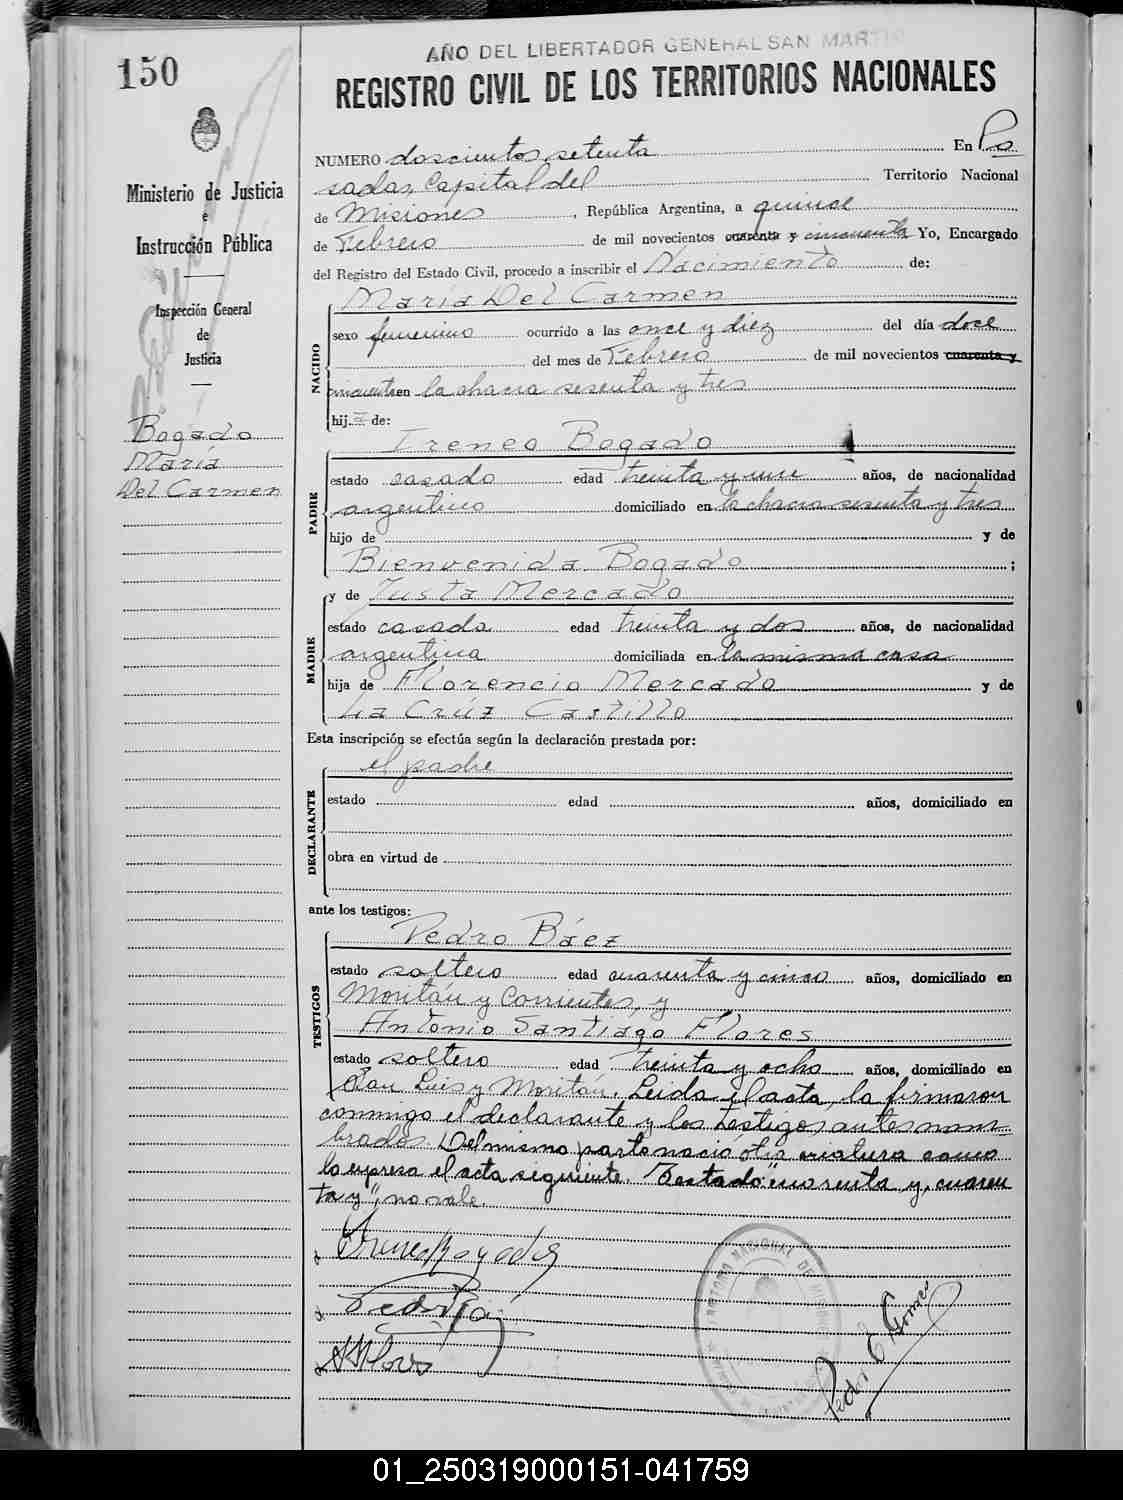 150
AÑO DEL LIBERTADOR GENERAL SAN MARTIN
REGISTRO CIVIL DE LOS TERRITORIOS NACIONALES
Ministerio de Justicia
e
Instrucción Pública
Inspección General
de
Justicia
Bogado
María
Del Carmen
NUMERO doscientos setenta En Po
sadas, Capital del Territorio Nacional
de Misiones, República Argentina, a quince
de Febrero de mil novecientos cuarenta y cincuenta Yo, Encargado
del Registro del Estado Civil, procedo a inscribir el Nacimiento de:
NACIDO
María Del Carmen
sexo femenino ocurrido a las once y diez del día doce
del mes de Febrero de mil novecientos cuarenta y
cincuenta en la chacra sesenta y tres
hija de:
PADRE
Ireneo Bogado
estado casado edad treinta y un años, de nacionalidad
argentino domiciliado en la chacra sesenta y tres
hijo de y de
Bienvenida Bogado ;
MADRE
y de Justa Mercado
estado casada edad treinta y dos años, de nacionalidad
argentina domiciliada en la misma casa
hija de Florencio Mercado y de
La Cruz Castillo
Esta inscripción se efectúa según la declaración prestada por:
DECLARANTE
el padre
estado edad años, domiciliado en
obra en virtud de
ante los testigos:
TESTIGOS
Pedro Báez
estado soltero edad cuarenta y cinco años, domiciliado en
Moritán y Corrientes, y
Antonio Santiago Flores
estado soltero edad treinta y ocho años, domiciliado en
San Luis y Moritán. Leida el acta, la firmaron
conmigo el declarante y los testigos antes nom-
brados. Del mismo parto nació otra criatura como
lo expresa el acta siguiente. Testado: "cuarenta y, cuaren
ta y", no vale.
Ireneo Bogado
Pedro Báez
A S Flores
Pedro E Gomes
01_250319000151-041759